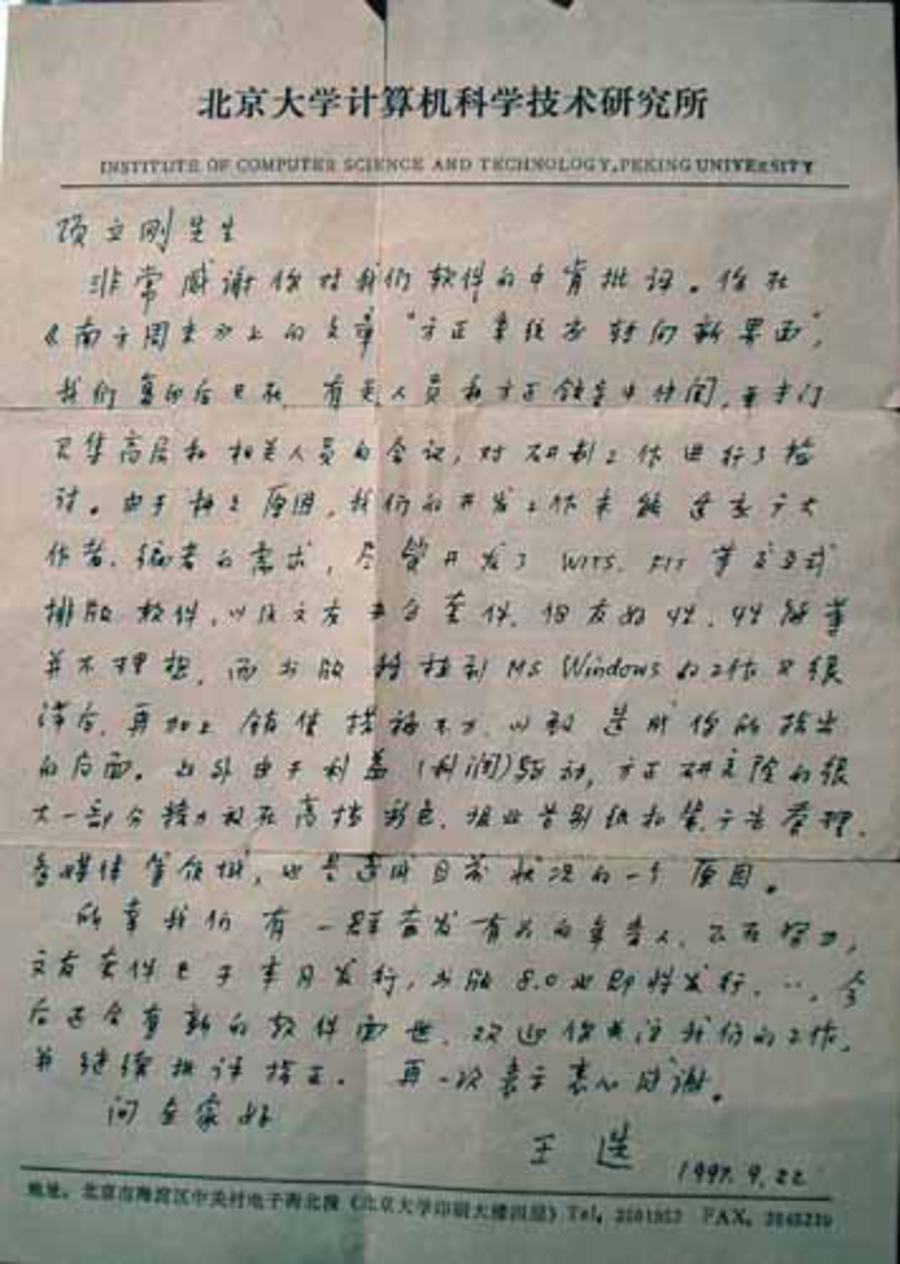 北京大学计算机科学技术研究所
INSTITUTE OF COMPUTER SCIENCE AND TECHNOLOGY,PEKING UNIVERSITY
项立刚先生
非常感谢你对我们软件的中肯批评。你在
《南方周末》上的文章“方正系统应转向新界面”,
我们复印后已在 有关人员和方正领导中传阅,并专门
召集高层和相关人员的会议,对研制工作进行了检
讨。由于种种原因,我们的开发工作未能适应广大
作者、编者的需求,尽管开发了 WITS、FIT 等交互式
排版软件,以及文友办公套件,但友好性、性能等
并不理想,而书版移植到 MS Windows 的工作又很
滞后,再加上销售措施不力,以致造成你所指出
的局面。此外由于利益(利润)驱动,方正研究院的很
大一部分精力放在高档彩色、报业告别纸和笔、广告管理、
多媒体等领域,也是造成目前状况的一个原因。
所幸我们有一群奋发有为的年青人,正在努力,
文友套件已于本月发行,书版8.0也即将发行,…,今
后还会有新的软件面世,欢迎你关注我们的工作,
并继续批评指正。 再一次表示衷心感谢。
问全家好
王选
1997.9.22
地址:北京市海淀区中关村电子街北段《北京大学印刷大楼四层》Tel, FAX,